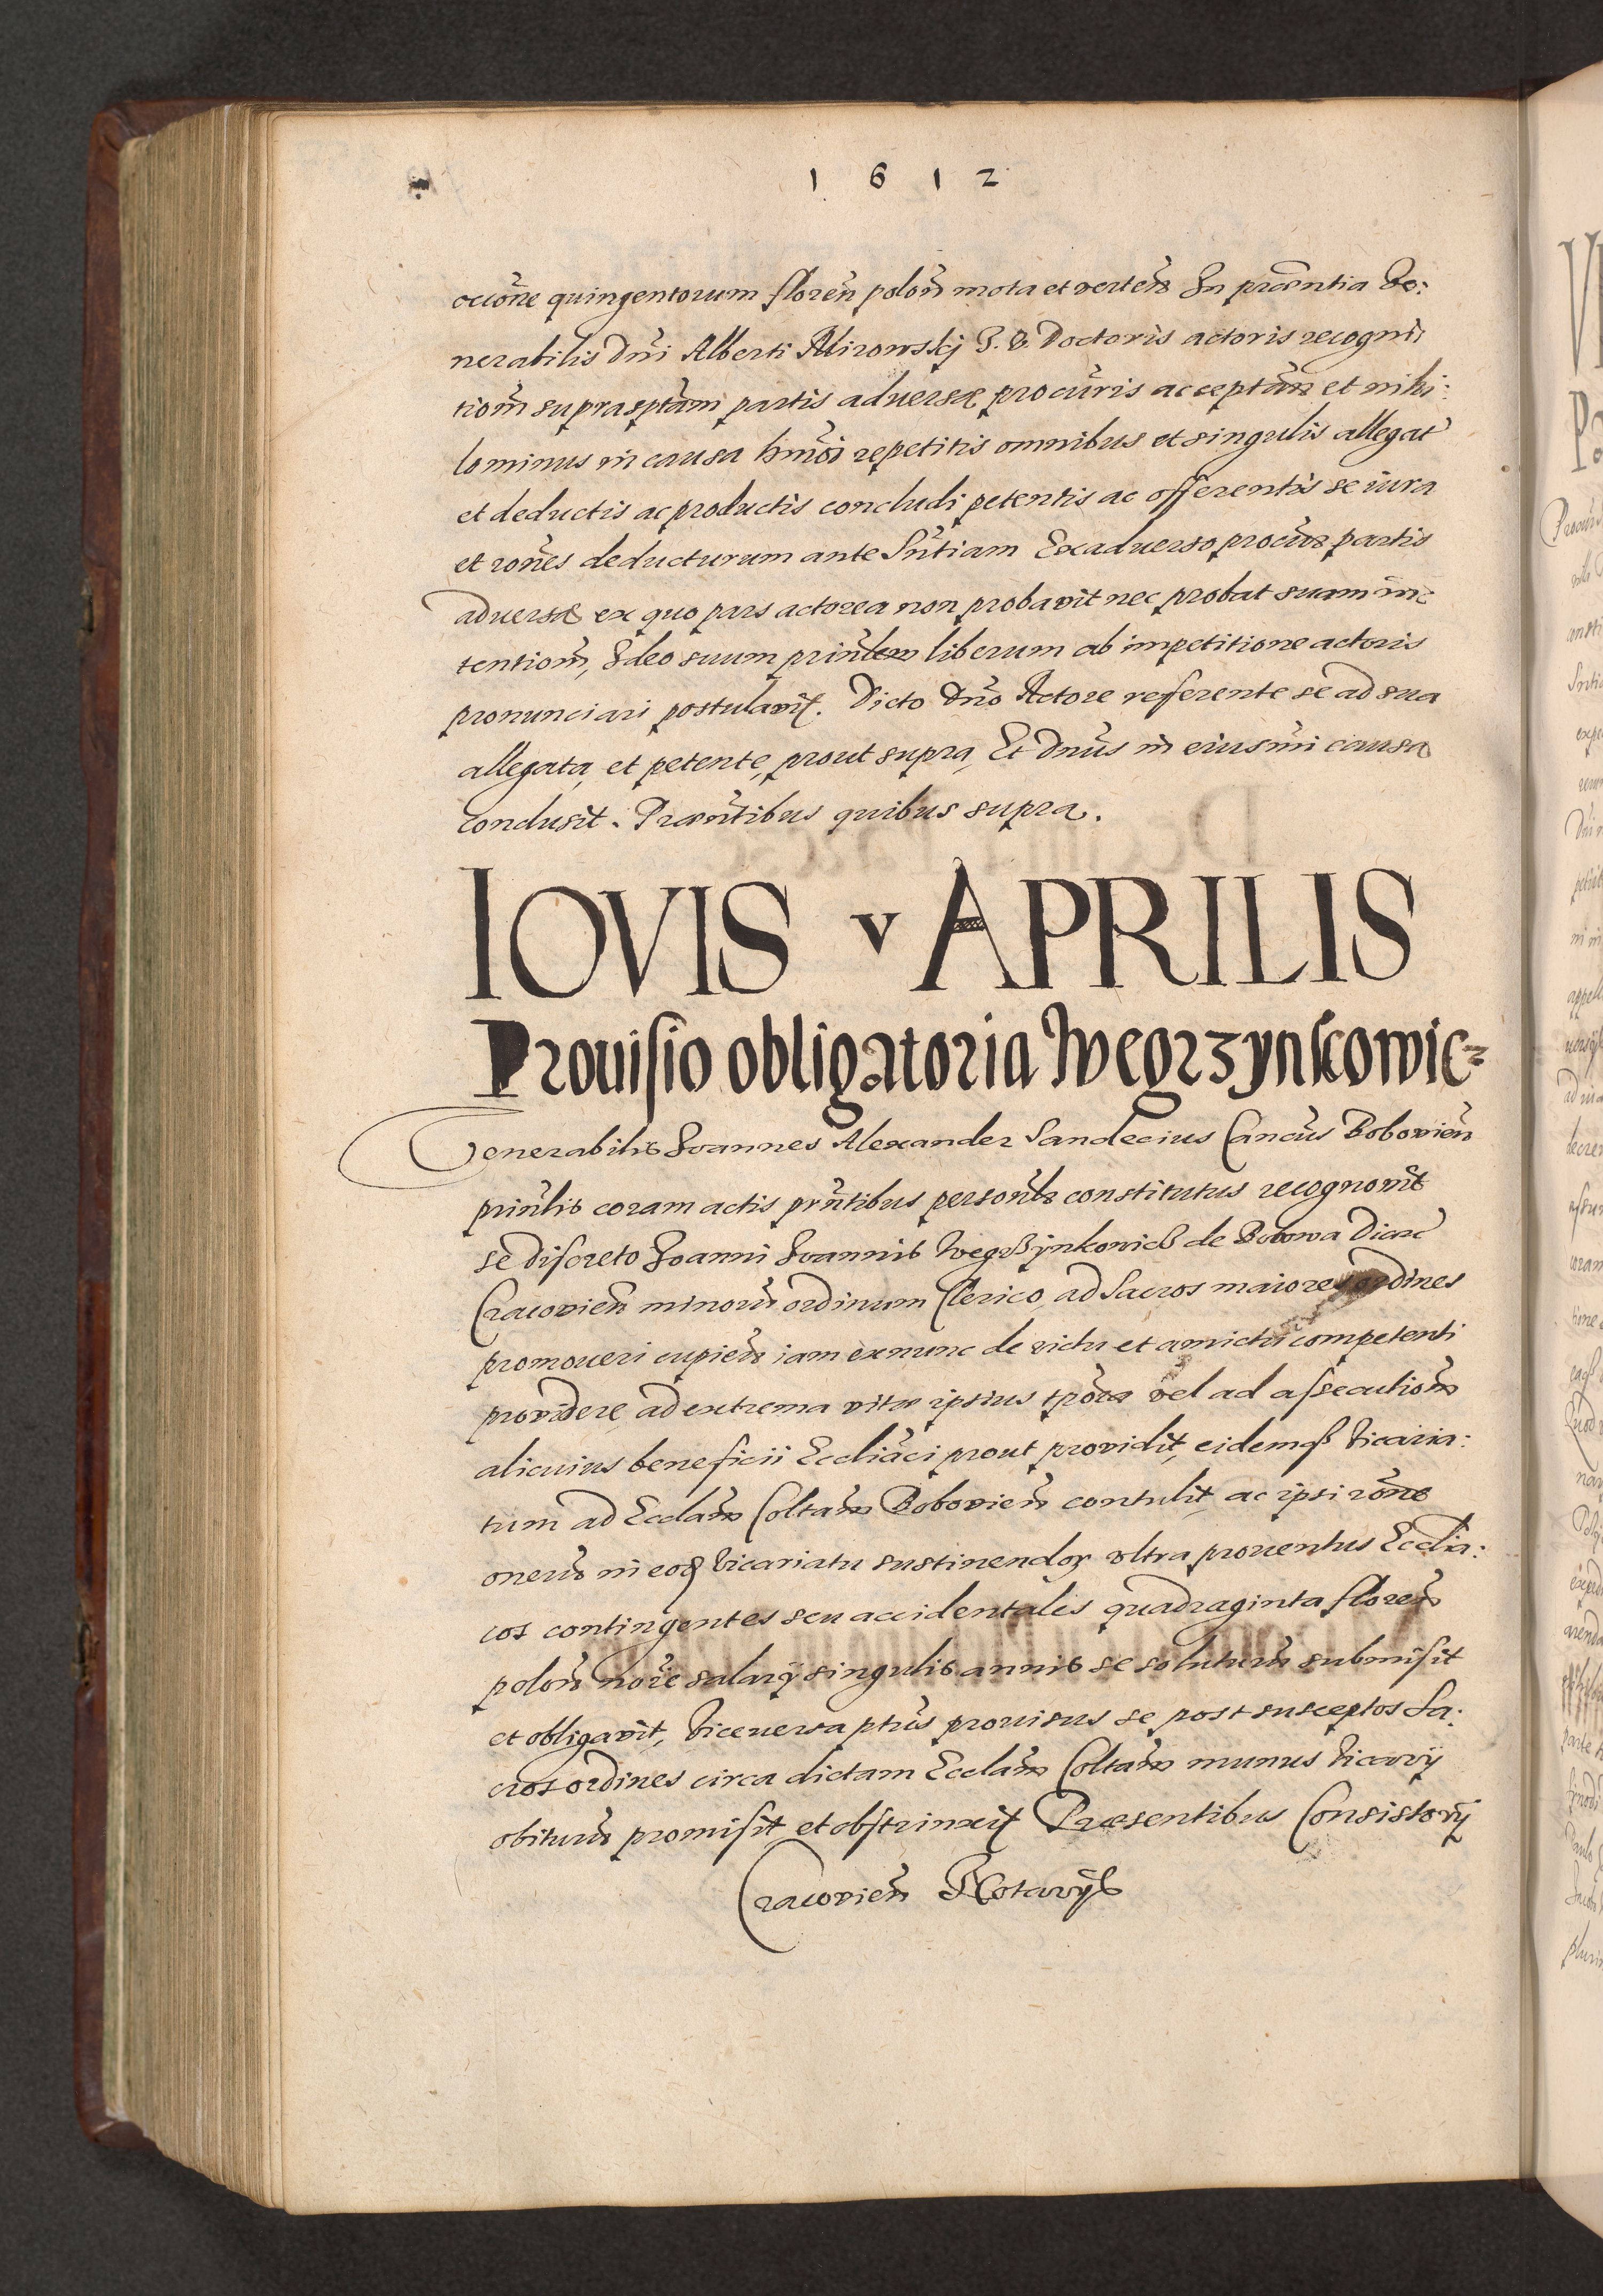 1 6 1 2
ccōne quingentorum floreñ poloñ mota et verteñ In praeñtia Ve:
nerabilis Dñi Alberti Mirowskj I. V. Doctoris actoris recogni:
tioñ suprasptam partis aduersae procūris acceptañ et nihi:
lominus in causa hmōi repetitis omnibus et singulis allegat
et deductis ac productis concludi petentis ac offerentis se iura
et rōnes deducturum ante Sñtiam Ex aduerso procūr partis
aduersae ex quo pars actorea non probavit nec probat suam in:
tentioñ, Ideo suum prinlem liberum ab impetitione actoris
pronunciari postulavit. Dicto Dño Actore referente se ad sua
allegata, et petente, prout supra, Et Dñus in eiusmi causa
conclusit. Praeñtibus quibus supra.
IOVIS v APRILIS
Prouisio obligatoria Wegrzynkowic=
Venerabilis Ioannes Alexander Sandecius Cancūs Bobovieñ
prinlis coram actis prñtibus personlr constitutus recognovit
se discreto Ioanni Ioannis Wegrßynkovicß de Bobowa Diaec
Cracovieñ minorū ordinum Clerico, ad Sacros maiores ordines
promoueri cupieñ iam exnunc de victu et amictu competenti
providere, ad extrema vitae ipsius tpōra vel ad assecutioñ
alicuius beneficii Eccliaci prout providit, eidemq Vicaria:
tum ad Ecclañ Coltañ Bobovieñ contulit, ac ipsi rōne
onerū in eoď Vicariatu sustinendor vltra prouentus Ecclia:
cos contingentes seu accidentales quadraginta floreñ
poloñ noīe salarij singulis annis se soluturū submisit
et obligavit, Viceuersa ptūs prouisus se post susceptos Sa:
cros ordines circa dictam Ecclañ Coltañ munus Vicarij
obiturū promisit et obstrinxit Praesentibus Consistorij
Cracovieñ Notarijs